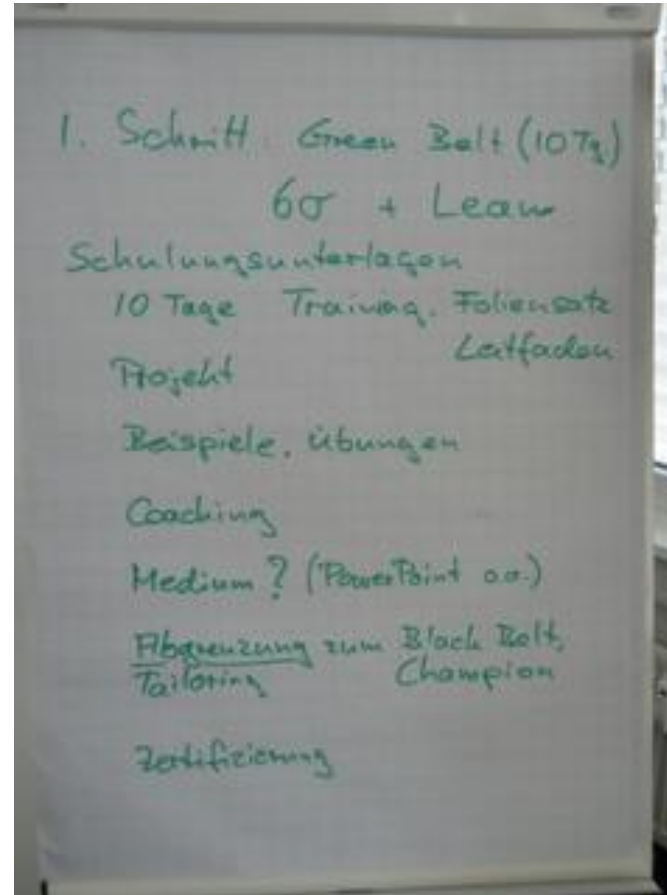 1. Schritt: Green Belt (10 Tg)
6σ + Lean
Schulungsunterlagen
10 Tage Training, Foliensatz
Leitfaden
Projekt
Beispiele, Übungen
Coaching
Medium? (PowerPoint o.ä.)
Abgrenzung zum Black Belt,
Tailoring Champion
Zertifizierung